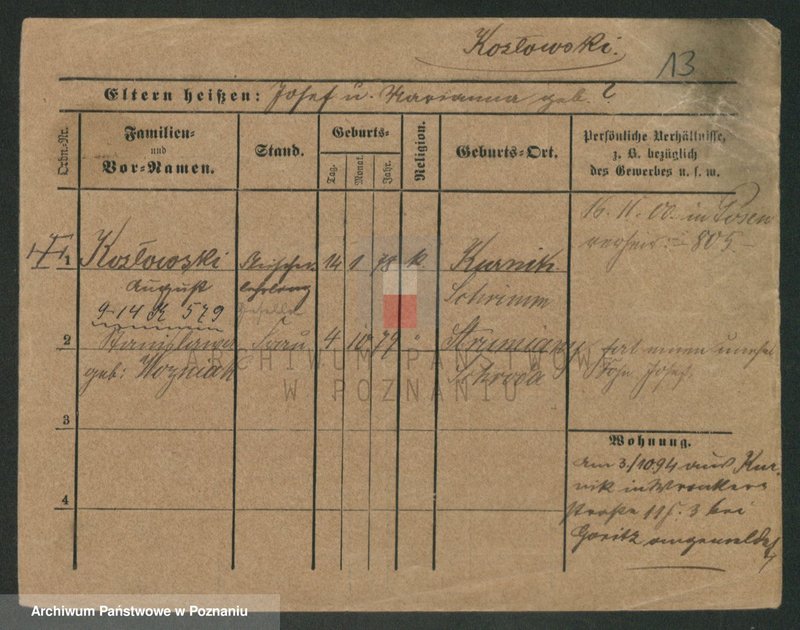 Kozłowski.
13
Eltern heißen: Josef u. Marianna geb. ?
Ordn.-Nr.
Familien- und Vor-Namen.
Stand.
Geburts-
Tag.
Monat.
Jahr.
Religion.
Geburts-Ort.
Persönliche Verhältnisse, z. B. bezüglich des Gewerbes u. s. w.
16. 11. 00. in Posen
verheir. 805
1 Kozłowski 14 1 78 k. Kurnik
August lehrling Schrimm
9-14 K 579 Geselle
2 Stanisława Frau 4 10 79 " hat einen unehel
geb: Wozniak Schroda Sohn Josef.
3
Wohnung.
4
am 3/10 94 aus Kur-
nik in Wronker-
straße 11 b. 3 bei
Goritz angemeldet
ARCHIWUM PAŃSTWOWE
W POZNANIU
Archiwum Państwowe w Poznaniu